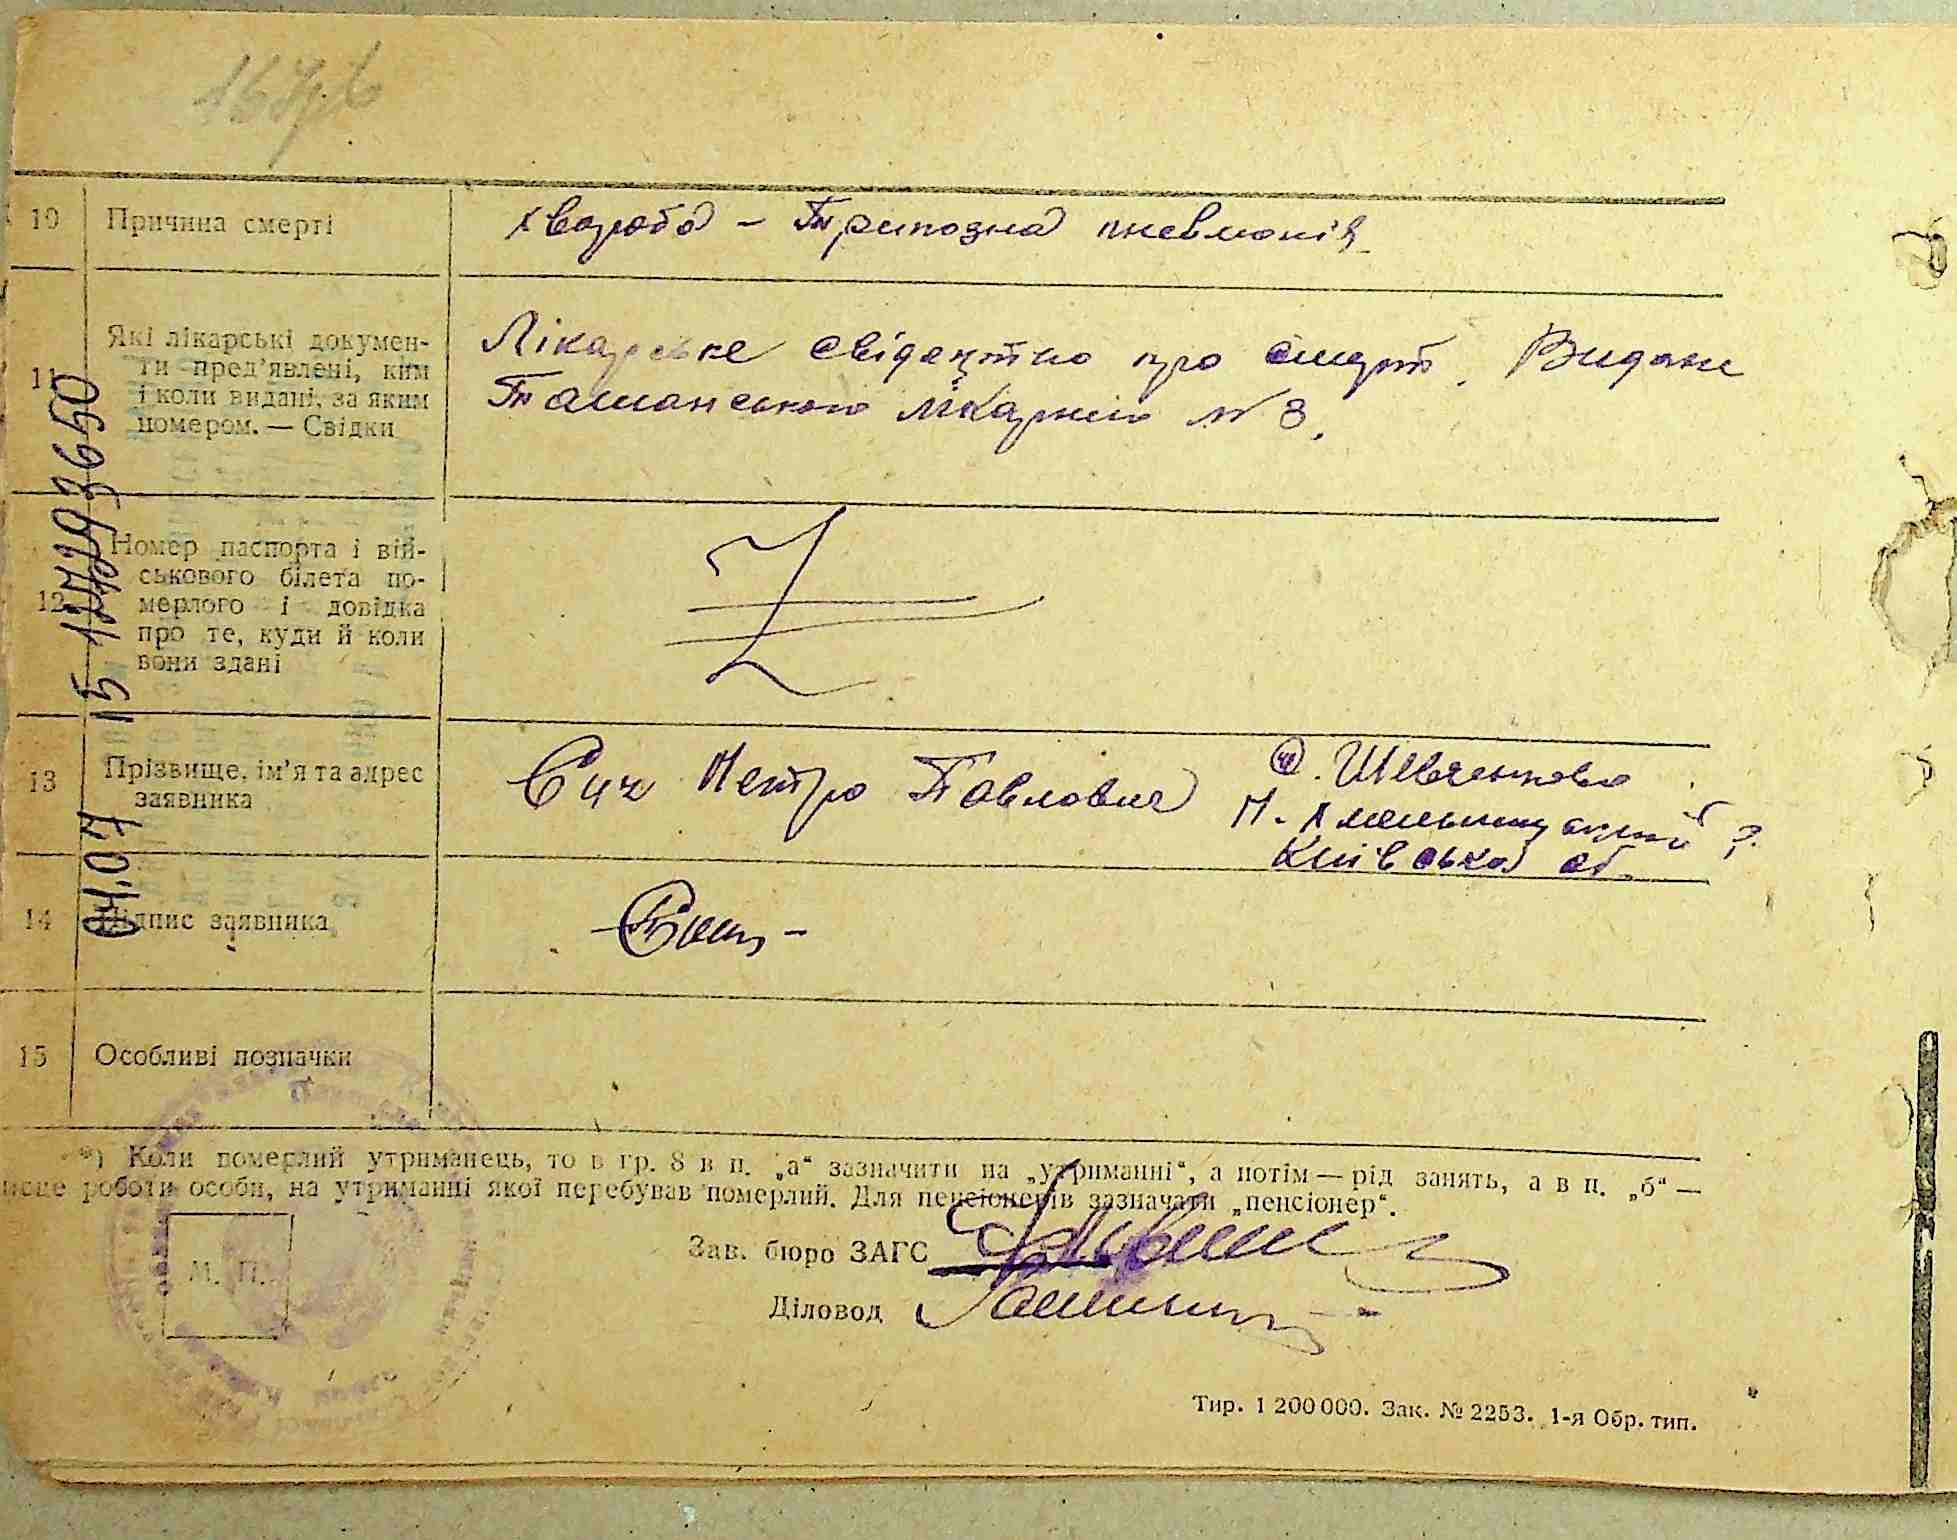 10 Причина смерті
хвороба - Грипозна пневмонія
11 Які лікарські докумен-
ти пред’явлені, ким
і коли видані, за яким
номером. — Свідки
Лікарське свідоцтво про смерть. Видане
Ташанською лікарнею № 3.
12 Номер паспорта і вій-
ськового білета по-
мерлого і довідка
про те, куди й коли
вони здані
Z
13 Прізвище, ім’я та адрес
заявника
Сич Петро Павлович
с. Шевченково
П. Хмельницький р.
Київська об.
14 Підпис заявника
15 Особливі позначки
04.07 15 17793650
*) Коли померлий утриманець, то в гр. 8 в п. „а“ зазначити на „утриманні“, а потім — рід занять, а в п. „б“ —
місце роботи особи, на утриманні якої перебував померлий. Для пенсіонерів зазначати „пенсіонер“.
Зав. бюро ЗАГС
М. П.
Діловод
Тир. 1 200 000. Зак. № 2253. 1-я Обр. тип.